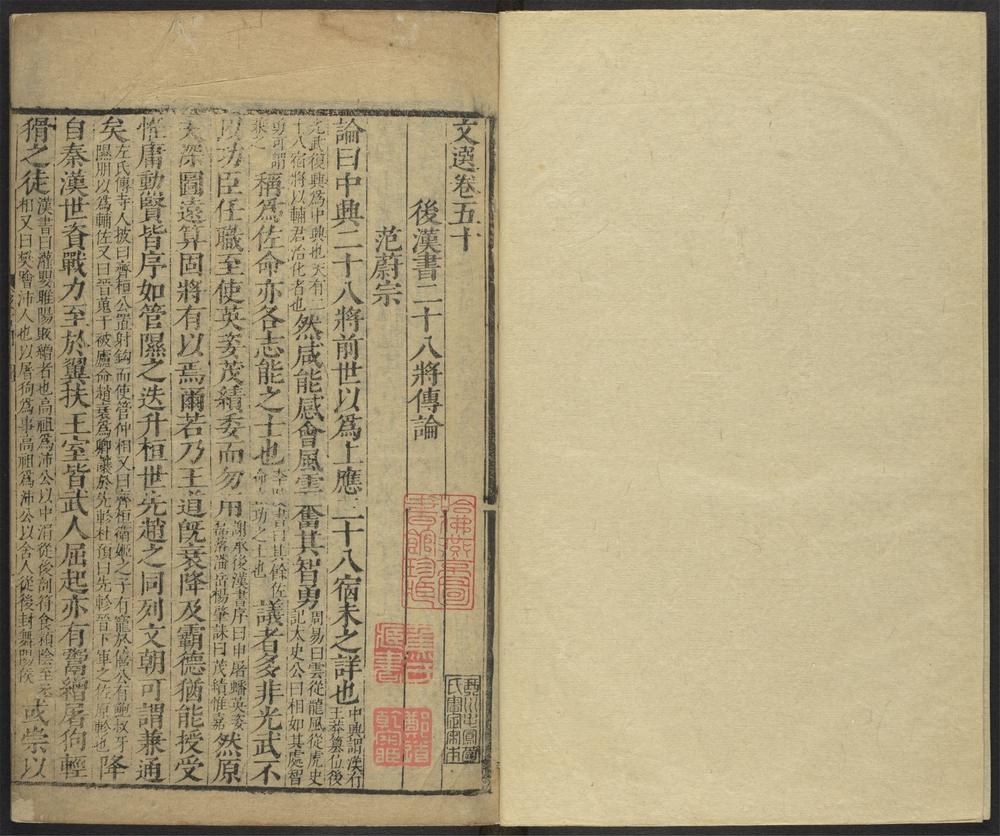 文選卷五十
後漢書二十八將傳論
范蔚宗
論曰中興二十八將前世以爲上應二十八宿未之詳也中興謂漢行王莽篡位後
光武復興爲中興也天有二十八宿將以輔君治化者也然咸能感會風雲奮其智勇周易曰雲從龍風從虎史記太史公曰相如其處智
勇可謂兼之稱爲佐命亦各志能之士也書曰其餘佐命功之士也議者多非光武不
以功臣任職至使英姿茂績委而勿用謝承後漢書序曰申屠蟠英姿潘岳楊肇誄曰茂績惟嘉然原
夫深圖遠算固將有以焉爾若乃王道旣衰降及霸德猶能授受
惟庸勳賢皆序如管隰之迭升桓世先趙之同列文朝可謂兼通
矣左氏傳寺人披曰齊桓公置射鉤而使管仲相又曰齊桓衛姬之子有寵於僖公有鮑叔牙隰朋以爲輔佐又曰晉蒐于被廬命趙衰爲卿讓於先軫杜預曰先軫晉下軍之佐原軫也降
自秦漢世資戰力至於翼扶王室皆武人屈起亦有鬻繒屠狗輕
猾之徒漢書曰灌嬰睢陽販繒者也高祖爲沛公以中涓從後剖符食潁陰至丞相又曰樊噲沛人也以屠狗爲事高祖爲沛公以舍人從後封舞陽侯或崇以